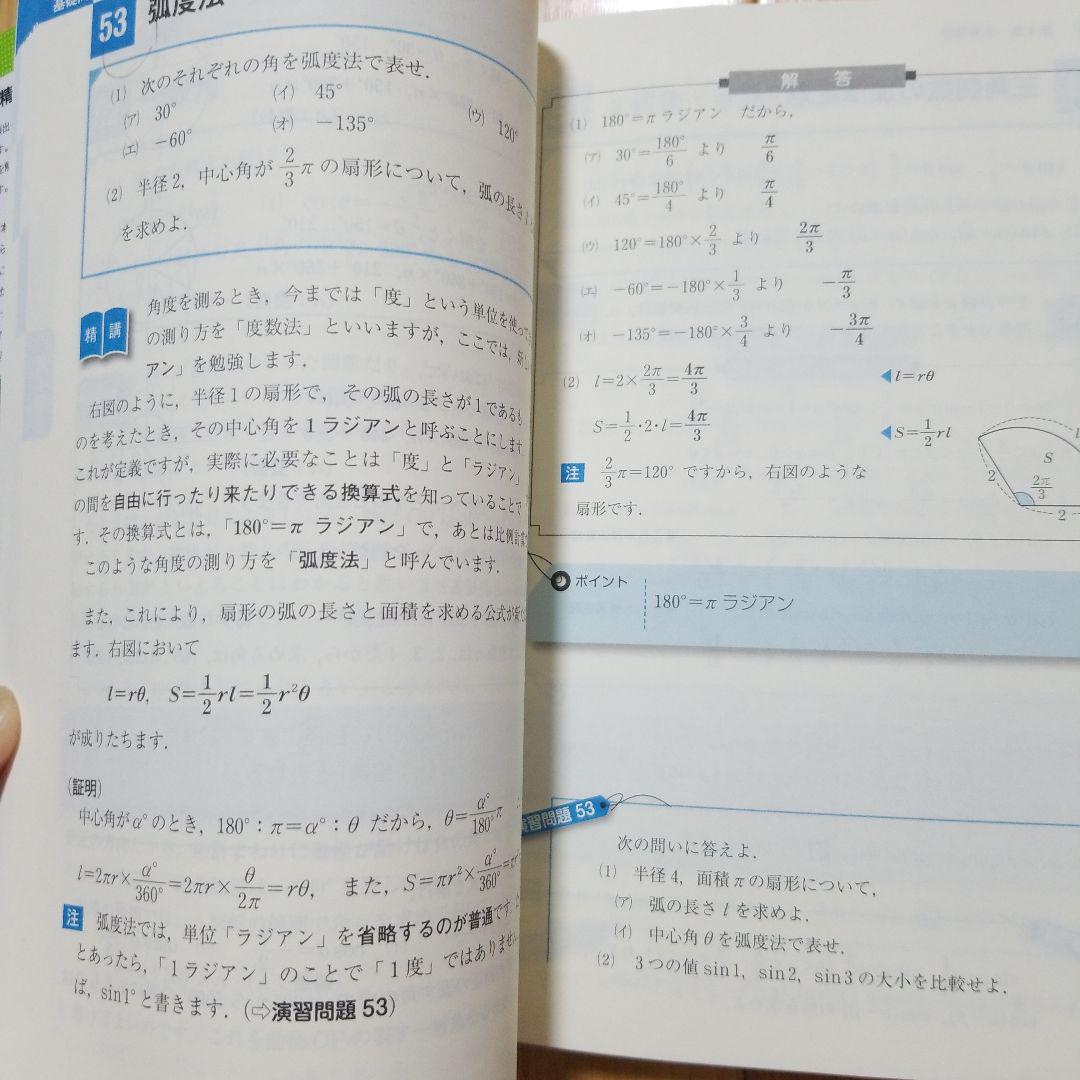 53 弧度法
(1) 次のそれぞれの角を弧度法で表せ.
(ア) 30° (イ) 45° (ウ) 120°
(エ) −60° (オ) −135°
(2) 半径2, 中心角が 2/3 π の扇形について, 弧の長さ
を求めよ.
精講
角度を測るとき, 今までは「度」という単位を使って
の測り方を「度数法」といいますが, ここでは, 新し
アン」を勉強します.
右図のように, 半径1の扇形で, その弧の長さが1であるも
のを考えたとき, その中心角を1ラジアンと呼ぶことにします
これが定義ですが, 実際に必要なことは「度」と「ラジアン」
の間を自由に行ったり来たりできる換算式を知っていることで
す. その換算式とは, 「180°=π ラジアン」で, あとは比例計算
このような角度の測り方を「弧度法」と呼んでいます.
また, これにより, 扇形の弧の長さと面積を求める公式が
ます. 右図において
l=rθ, S=1/2 rl=1/2 r²θ
が成りたちます.
(証明)
中心角がα°のとき, 180°:π=α°:θ だから, θ=α°/180° π
l=2πr×α°/360°=2πr×θ/2π=rθ, また, S=πr²×α°/360°
注 弧度法では, 単位「ラジアン」を省略するのが普通です.
とあったら, 「1ラジアン」のことで「1度」ではありません
ば, sin1°と書きます. (⇨演習問題 53)
解 答
(1) 180°=π ラジアン だから,
(ア) 30°=180°/6 より π/6
(イ) 45°=180°/4 より π/4
(ウ) 120°=180°×2/3 より 2π/3
(エ) −60°=−180°×1/3 より −π/3
(オ) −135°=−180°×3/4 より −3π/4
(2) l=2×2π/3=4π/3 ◀l=rθ
S=1/2・2・l=4π/3 ◀S=1/2 rl
注 2/3 π=120° ですから, 右図のような
扇形です.
S
l
2
2π/3
2
ポイント
180°=π ラジアン
演習問題 53
次の問いに答えよ.
(1) 半径4, 面積πの扇形について,
(ア) 弧の長さ l を求めよ.
(イ) 中心角θを弧度法で表せ.
(2) 3つの値 sin1, sin2, sin3 の大小を比較せよ.